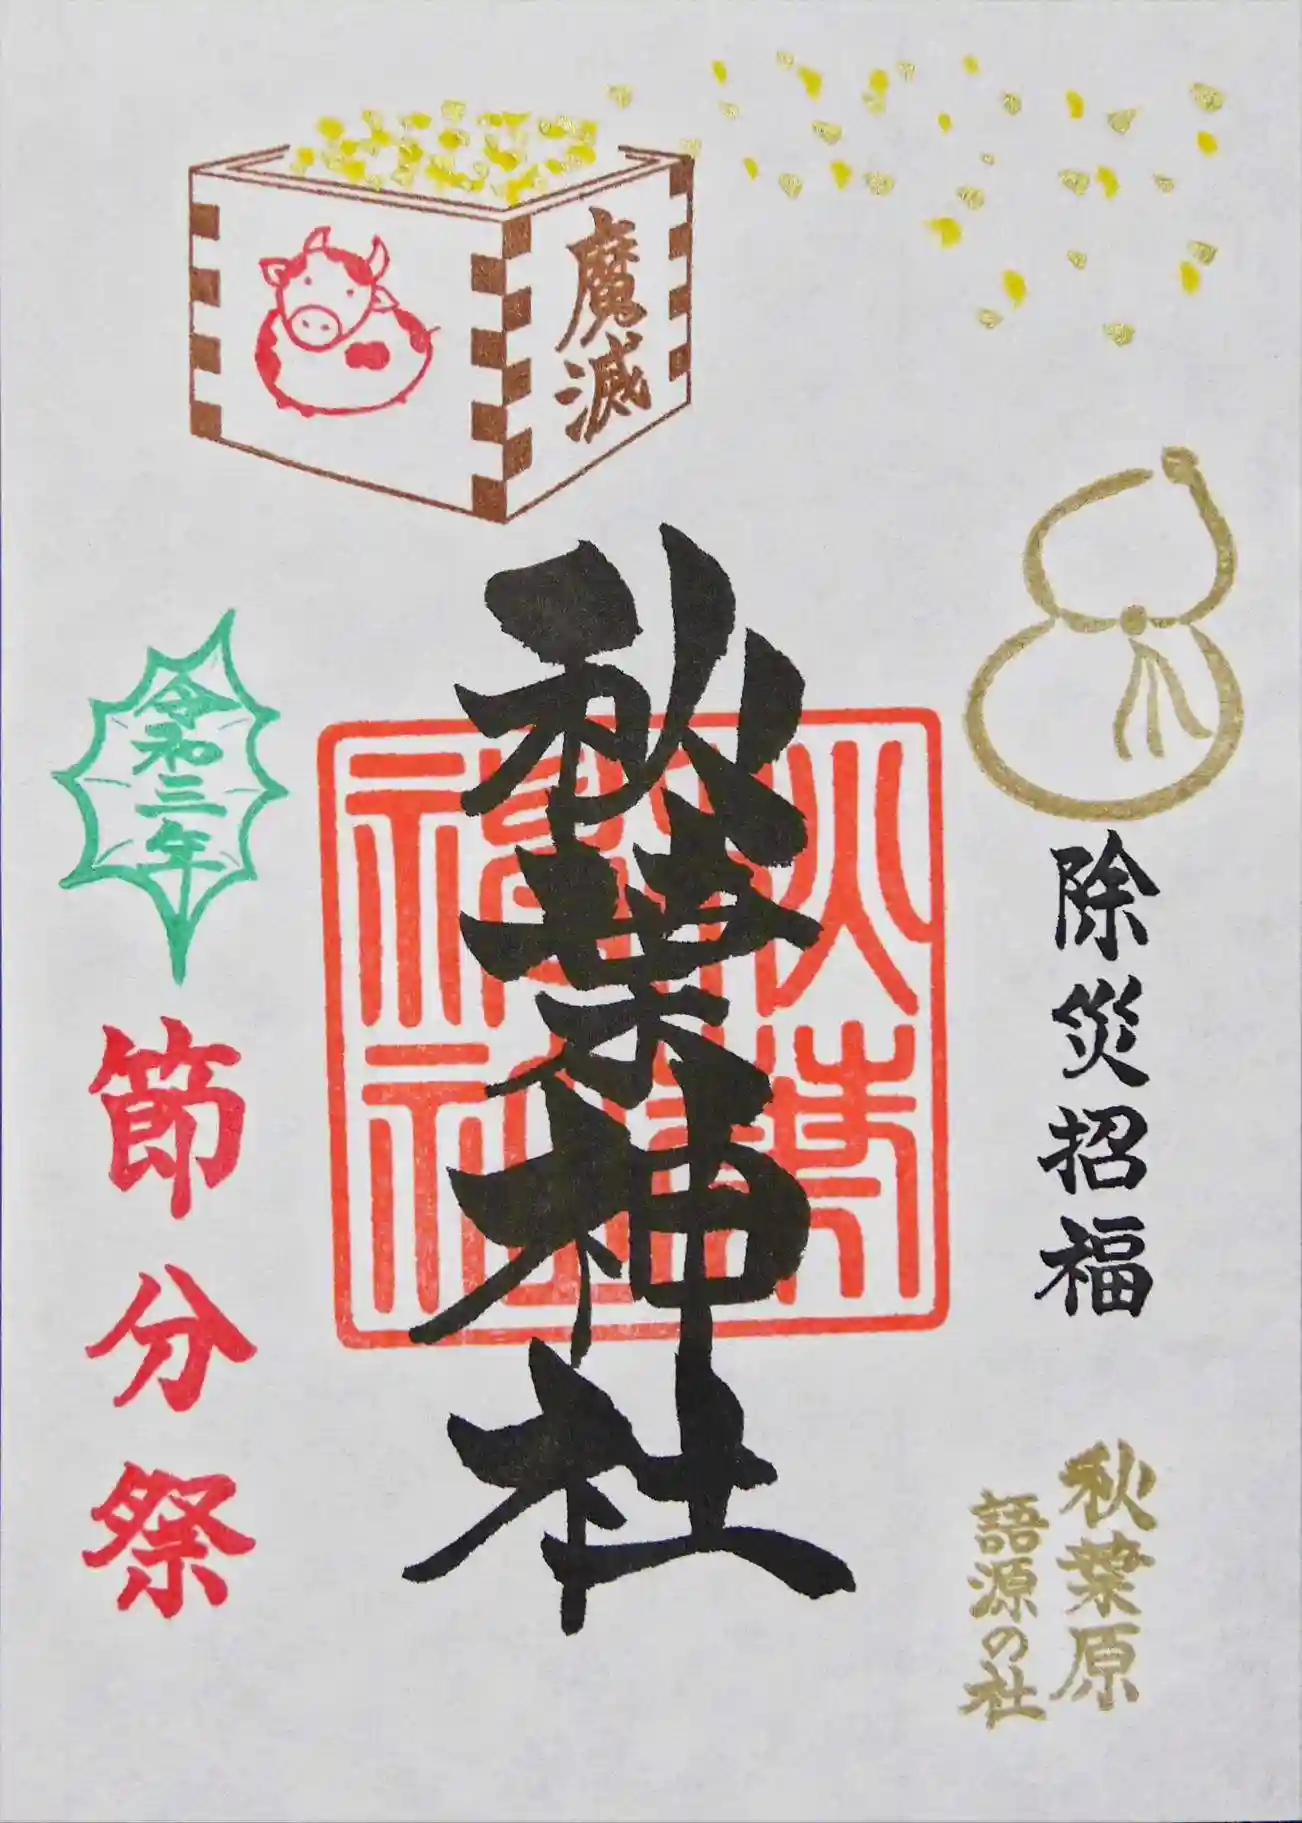 除災招福
秋葉原
語源の社
魔滅
秋葉神社
秋葉神社
令和三年
節分祭